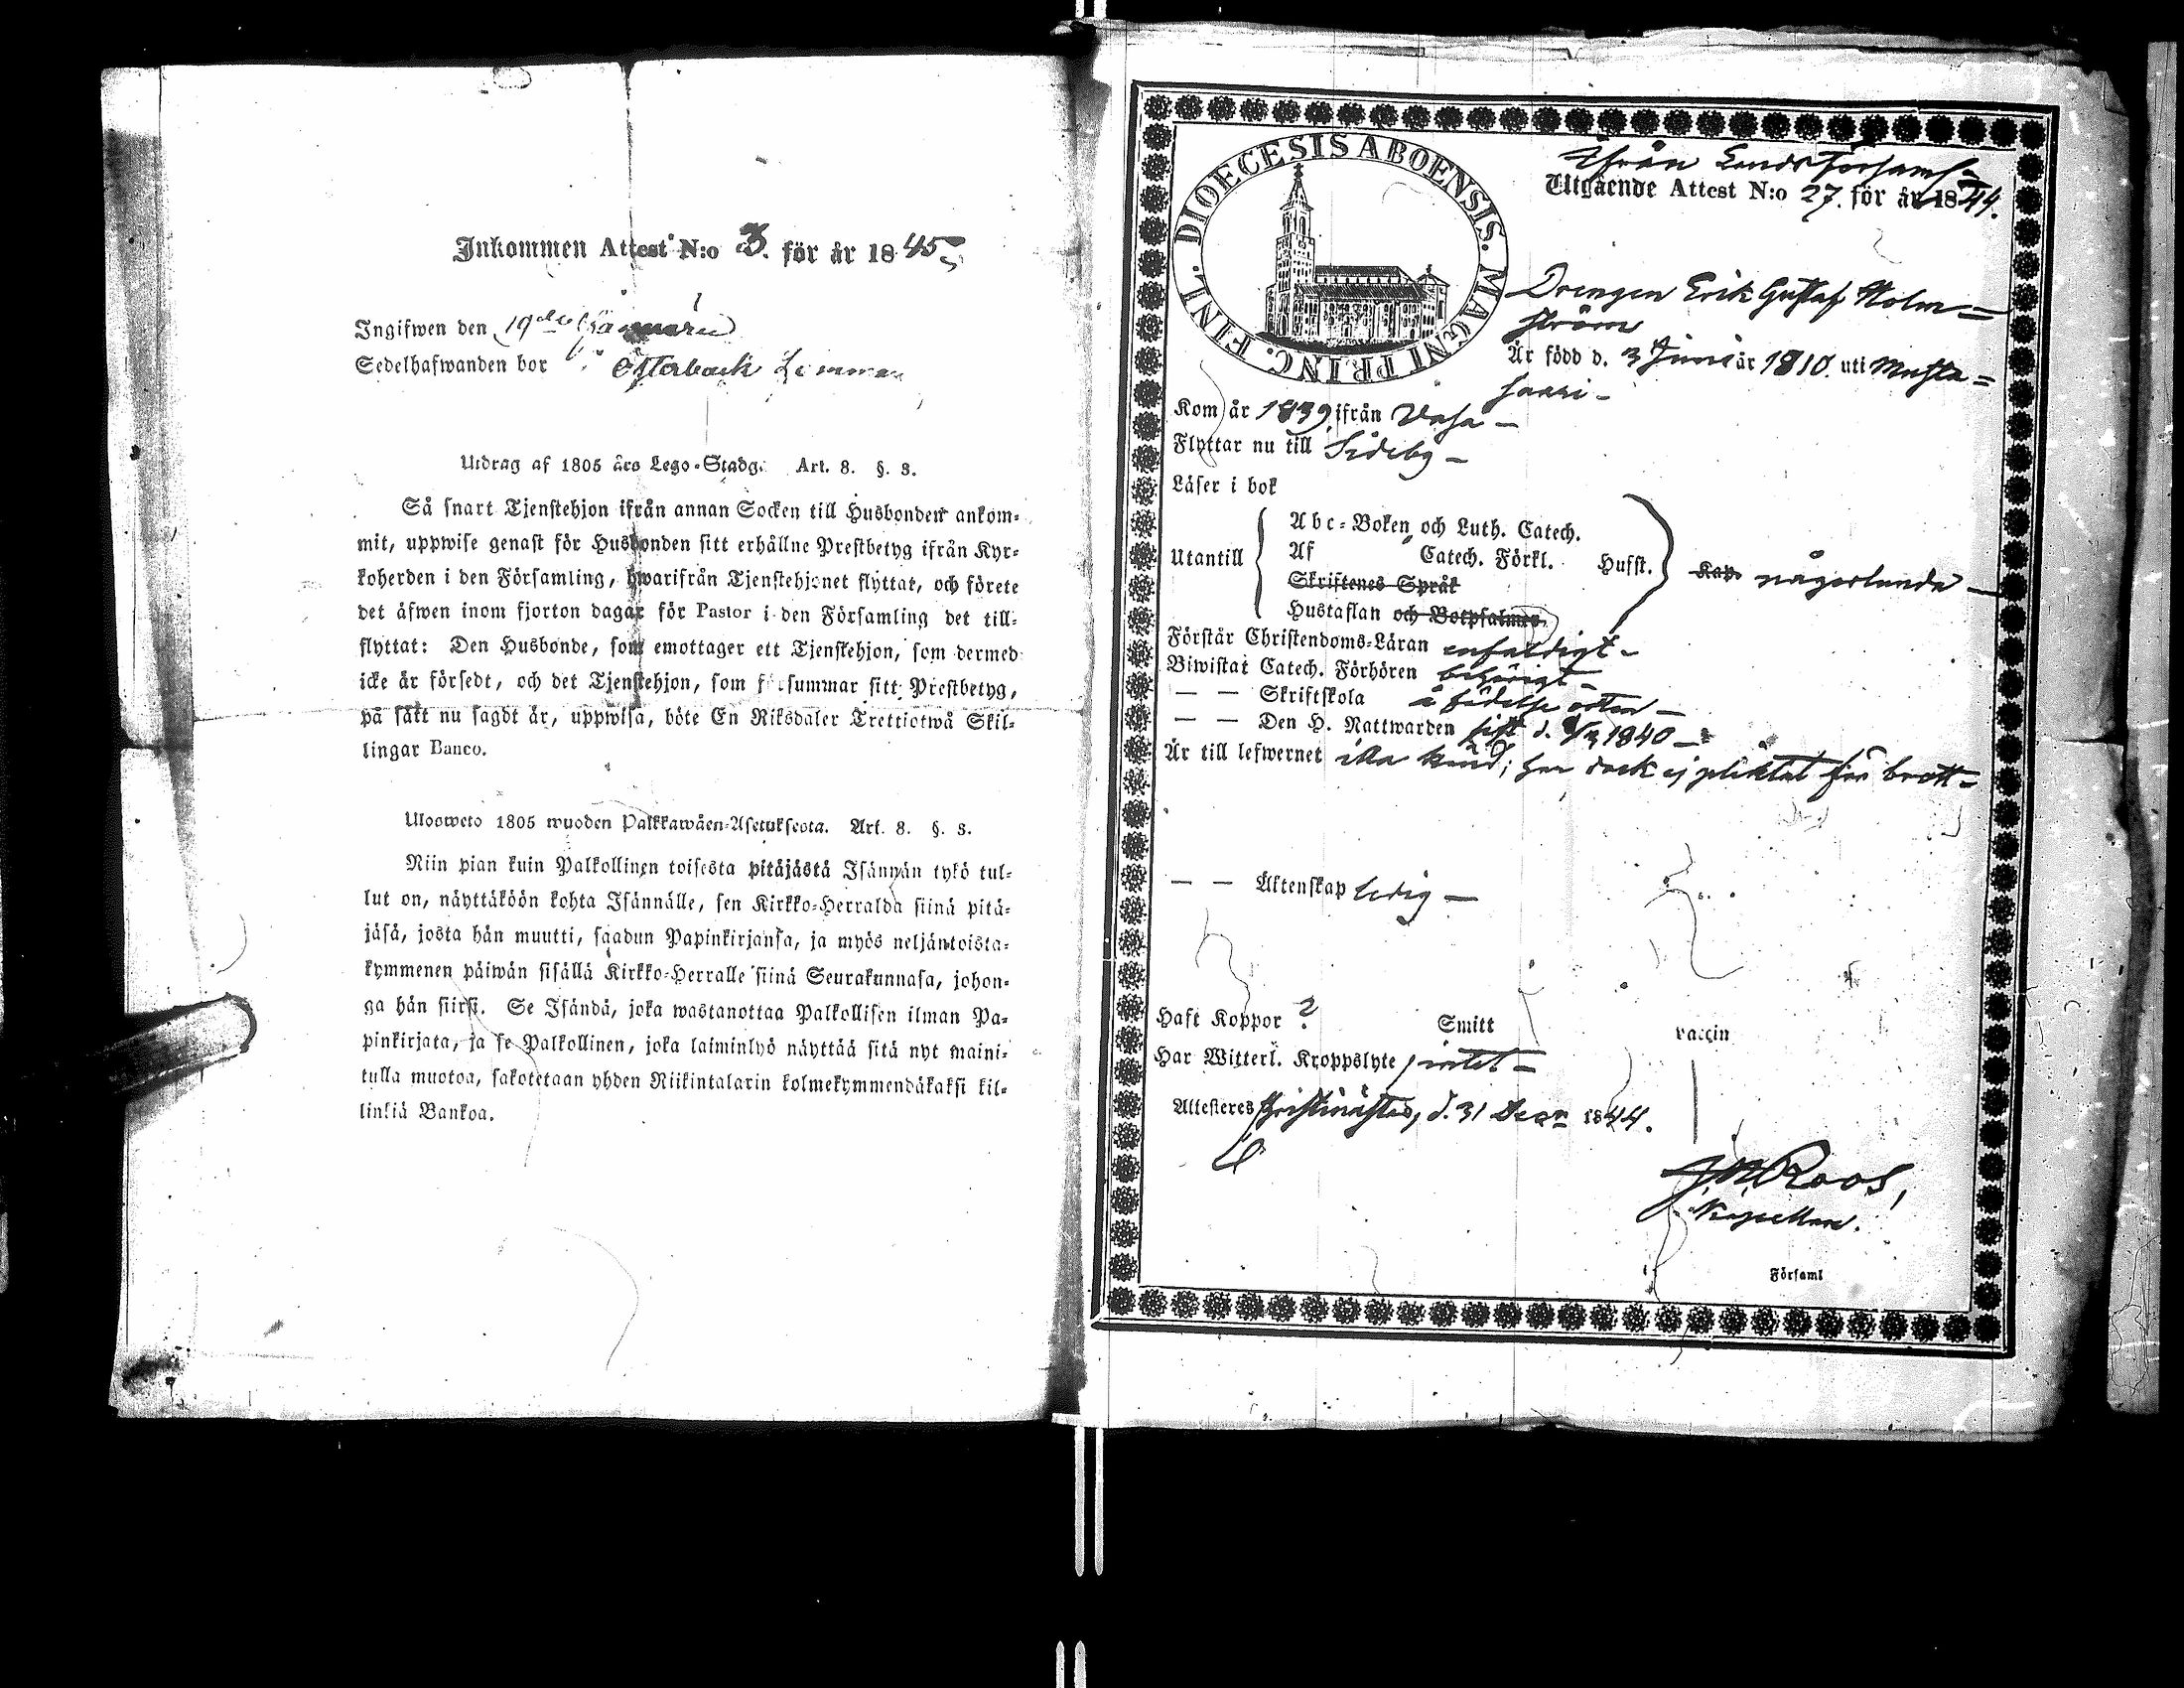 Inkommen Attest N:o 3. för år 1845
Ingifwen den 19de Januarii
Sedelhafwanden bor Österback
Utdrag af 1805 års Lego-Stadg. Art. 8. §. 3.
Så snart Tjenstehjon ifrån annan Socken till Husbonden ankom-
mit, uppwise genast för Husbonden sitt erhållne Prestbetyg ifrån Kyr-
koherden i den Församling, hwarifrån Tjenstehjonet flyttat, och förete
det äfwen inom fjorton dagar för Pastor i den Församling det till-
flyttat: Den Husbonde, som emottager ett Tjenstehjon, som dermed
icke är försedt, och det Tjenstehjon, som försummar sitt Prestbetyg,
på sätt nu sagdt är, uppwisa, böte En Riksdaler Trettiotwå Skil-
lingar Banco.
Ulosweto 1805 wuoden Palkkawäen-Asetuksesta. Art. 8. §. 3.
Niin pian kuin Palkollinen toisesta pitäjästä Isännän tykö tul-
lut on, näyttäköön kohta Isännälle, sen Kirkko-Herralda siinä pitä-
jäsä, josta hän muutti, saadun Papinkirjansa, ja myös neljäntoista-
kymmenen päiwän sisällä Kirkko-Herralle siinä Seurakunnasa, johon-
ga hän siirsi. Se Isändä, joka wastanottaa Palkollisen ilman Pa-
pinkirjata, ja se Palkollinen, joka laiminlyö näyttää sitä nyt maini-
tulla muotoa, sakotetaan yhden Riikintalarin kolmekymmendäkaksi kil-
linkiä Bankoa.
DIOECESIS ABOENSIS. MAGNI PRINC. FINL.
Ifrån Lands Församl-
Utgående Attest N:o 27. för år 1844.
Drengen Erik Gustaf Holm=
ström
Är född d. 3 Juni år 1810. uti Musta=
saari -
Kom år 1839 ifrån Vasa -
Flyttar nu till Sideby -
Läser i bok
Abc-Boken och Luth. Catech.
Utantill Af Catech. Förkl. Husst. Kap. någorlunda -
Skriftenes Språk
Hustaflan och Botpsalmer
Förstår Christendoms-Läran enfaldigt -
Biwistat Catech. Förhören behörigt -
— — Skriftskola å födelse orten -
— — Den H. Nattwarden sist d. 1840 -
Är till lefwernet illa känd; har dock ej pliktat för brott -
— — Äktenskap ledig -
Haft Koppor ? Smitt vaccin
Har Witterl. Kroppslyte intet -
Attesteres Christinæstad, d. 31 Decr 1844.
J M Roos,
Kapellan.
Församl